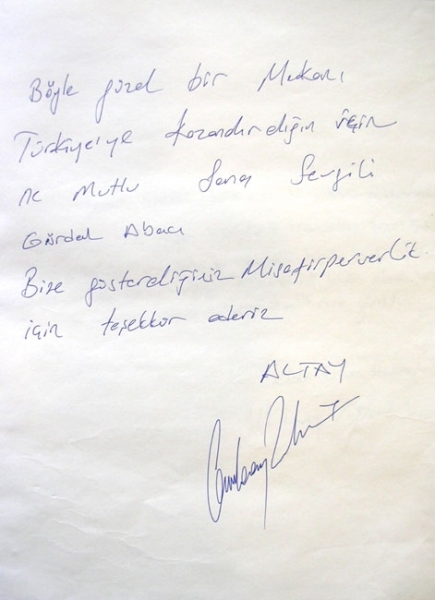 Böyle güzel bir Mekanı
Türkiye'ye kazandırdığın için
ne mutlu Sana Sevgili
Gürdal Abacı
Bize gösterdiğiniz Misafirperverlik
için teşekkür ederiz
ALTAY